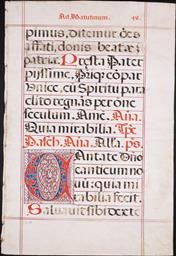 Ad Matutinum. 49.
pimus, Ditemur oēs
affati, donis beatae
patriae. Presta Pater
piissime, Patriq3 cōpar
Vnice, cū Spiritu para
clito regnas per omne
seculum. Amē. Aña.
Quia mirabilia. Tpe
Pasch. Aña. Alla. ps.
Cantate Dño
canticum no
uū: quia mi
rabilia fecit.
Saluauit sibi dexte